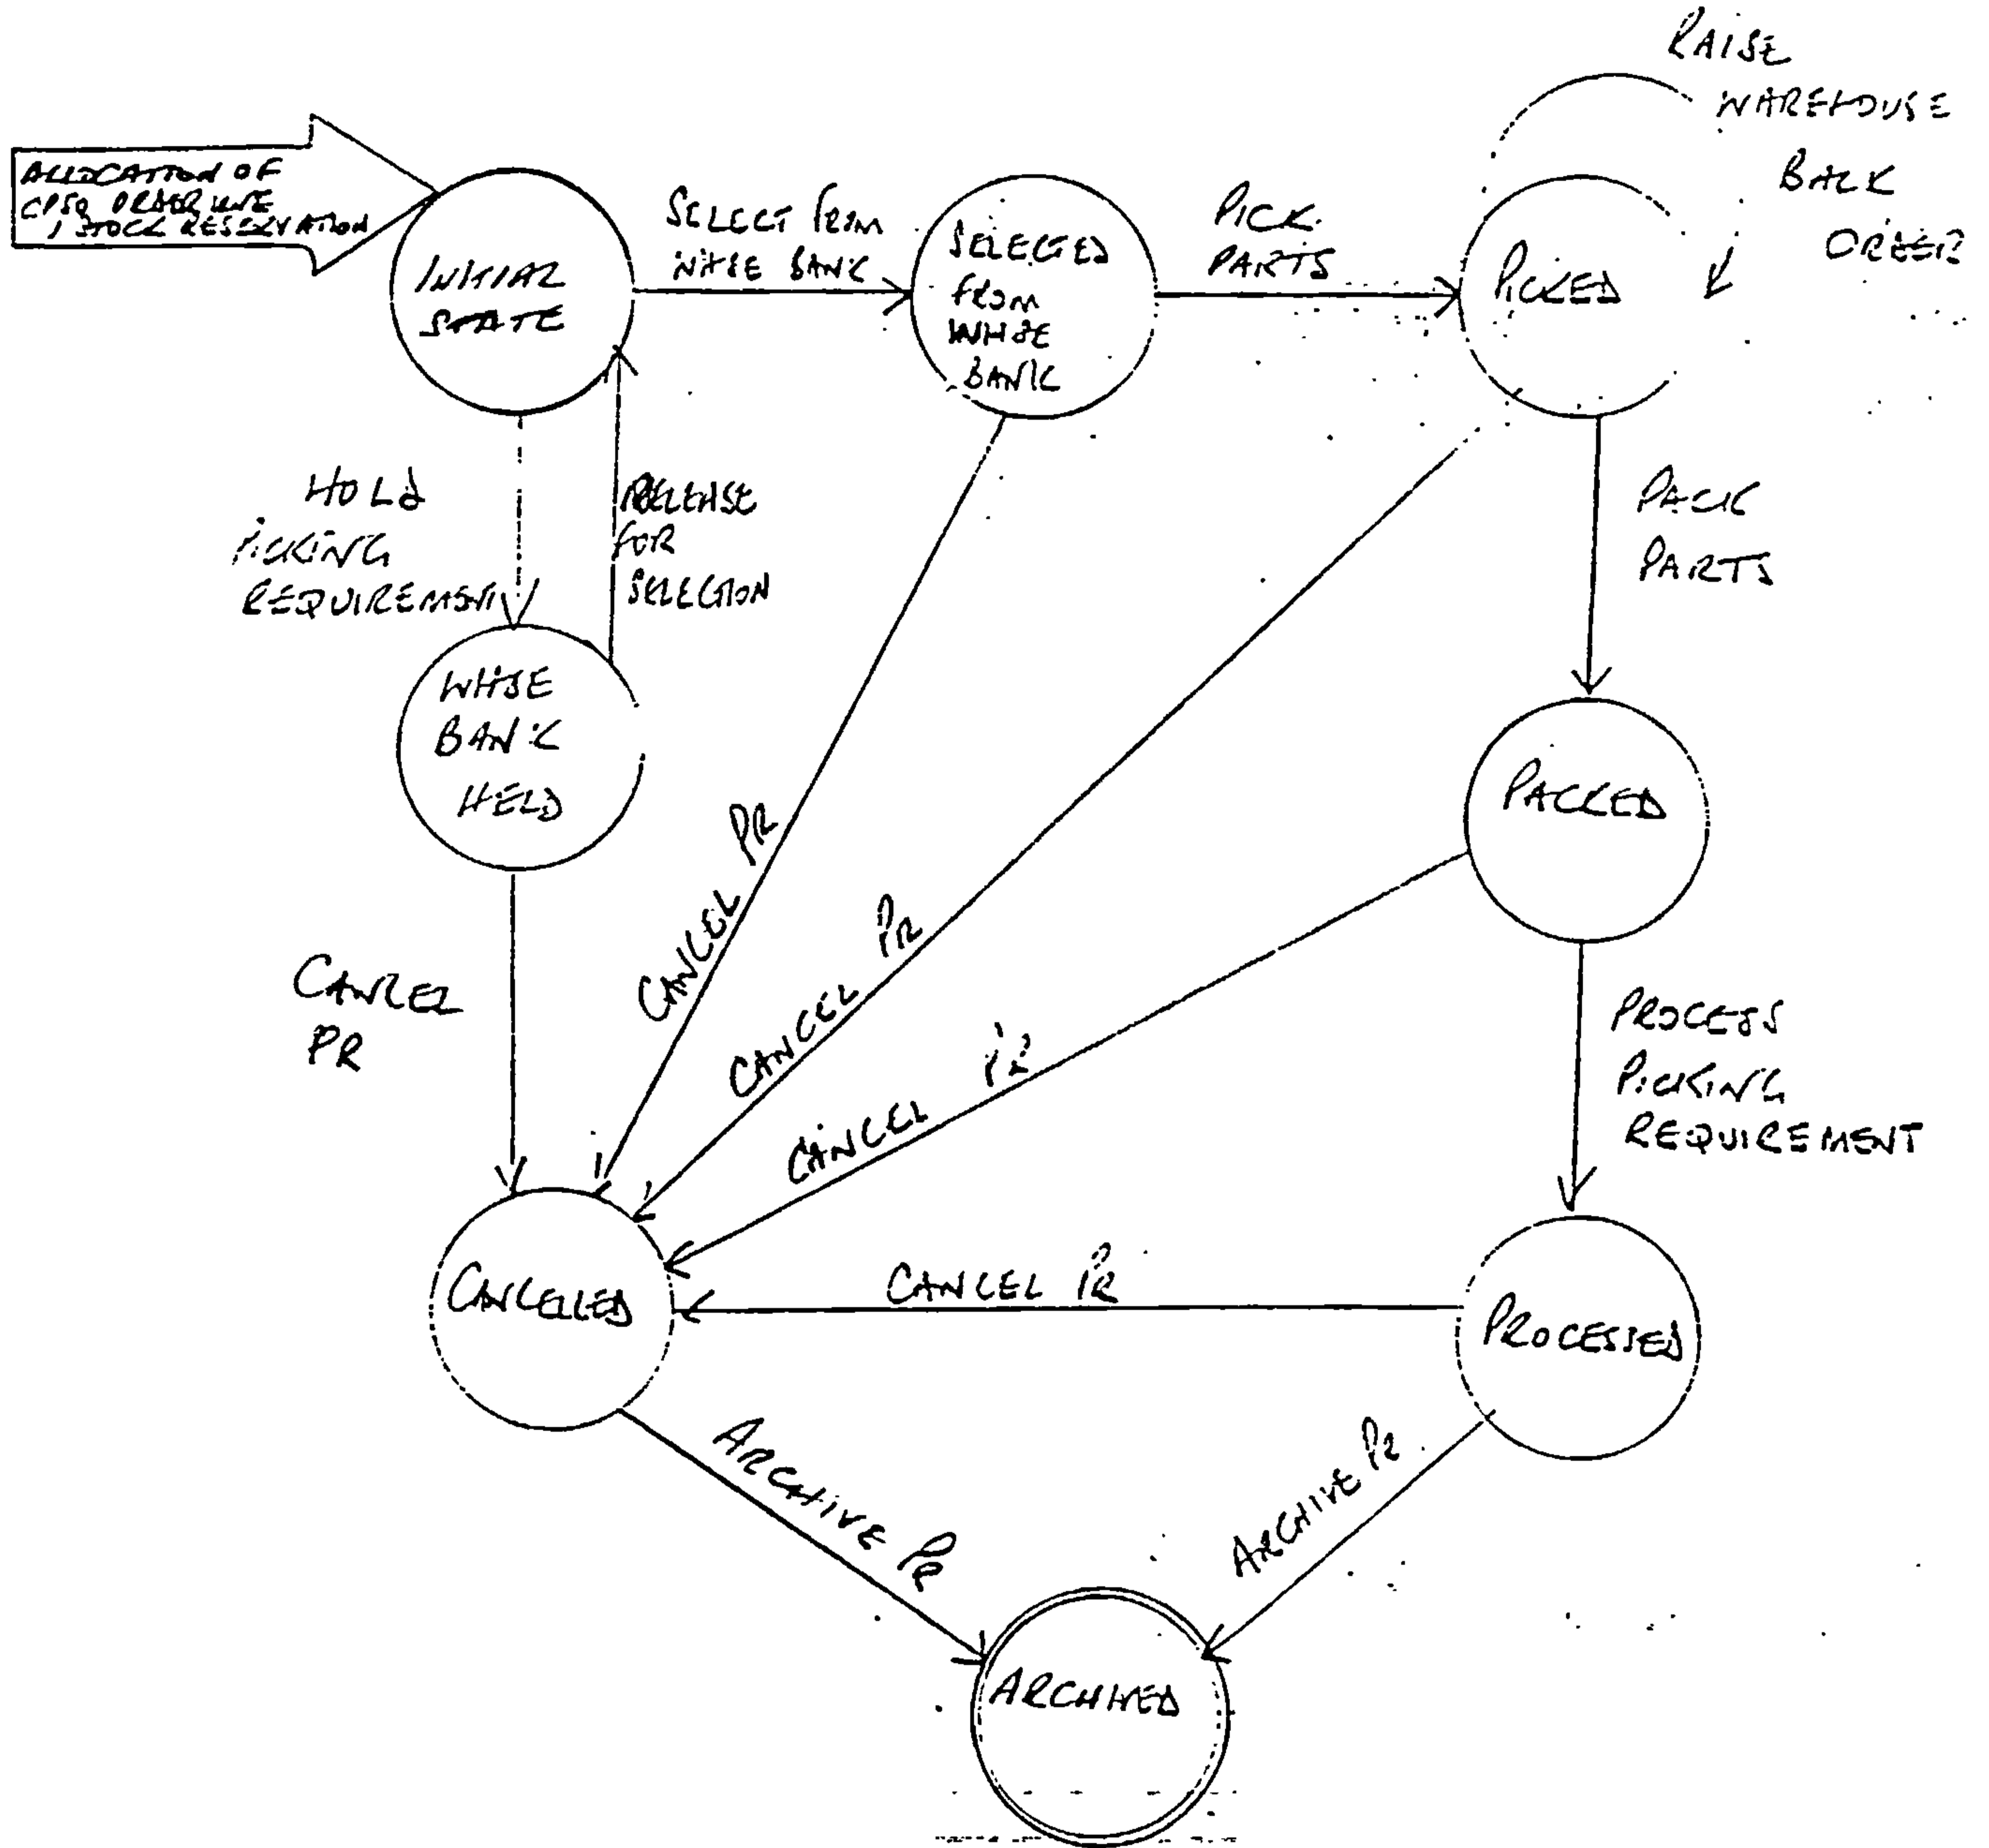 ALLOCATION OF
ORDER LINE
/ STOCK RESERVATION
INITIAL
STATE
SELECT FROM
WHSE BANK
SELECTED
FROM
WHSE
BANK
PICK
PARTS
PICKED
RAISE
WAREHOUSE
BACK
ORDER
HOLD
PICKING
REQUIREMENT
RELEASE
FOR
SELECTION
PACK
PARTS
WHSE
BANK
HELD
PACKED
CANCEL
PR
CANCEL PR
CANCEL PR
CANCEL PR
PROCESS
PICKING
REQUIREMENT
CANCELLED
CANCEL PR
PROCESSED
ARCHIVE PR
ARCHIVE PR
ARCHIVED